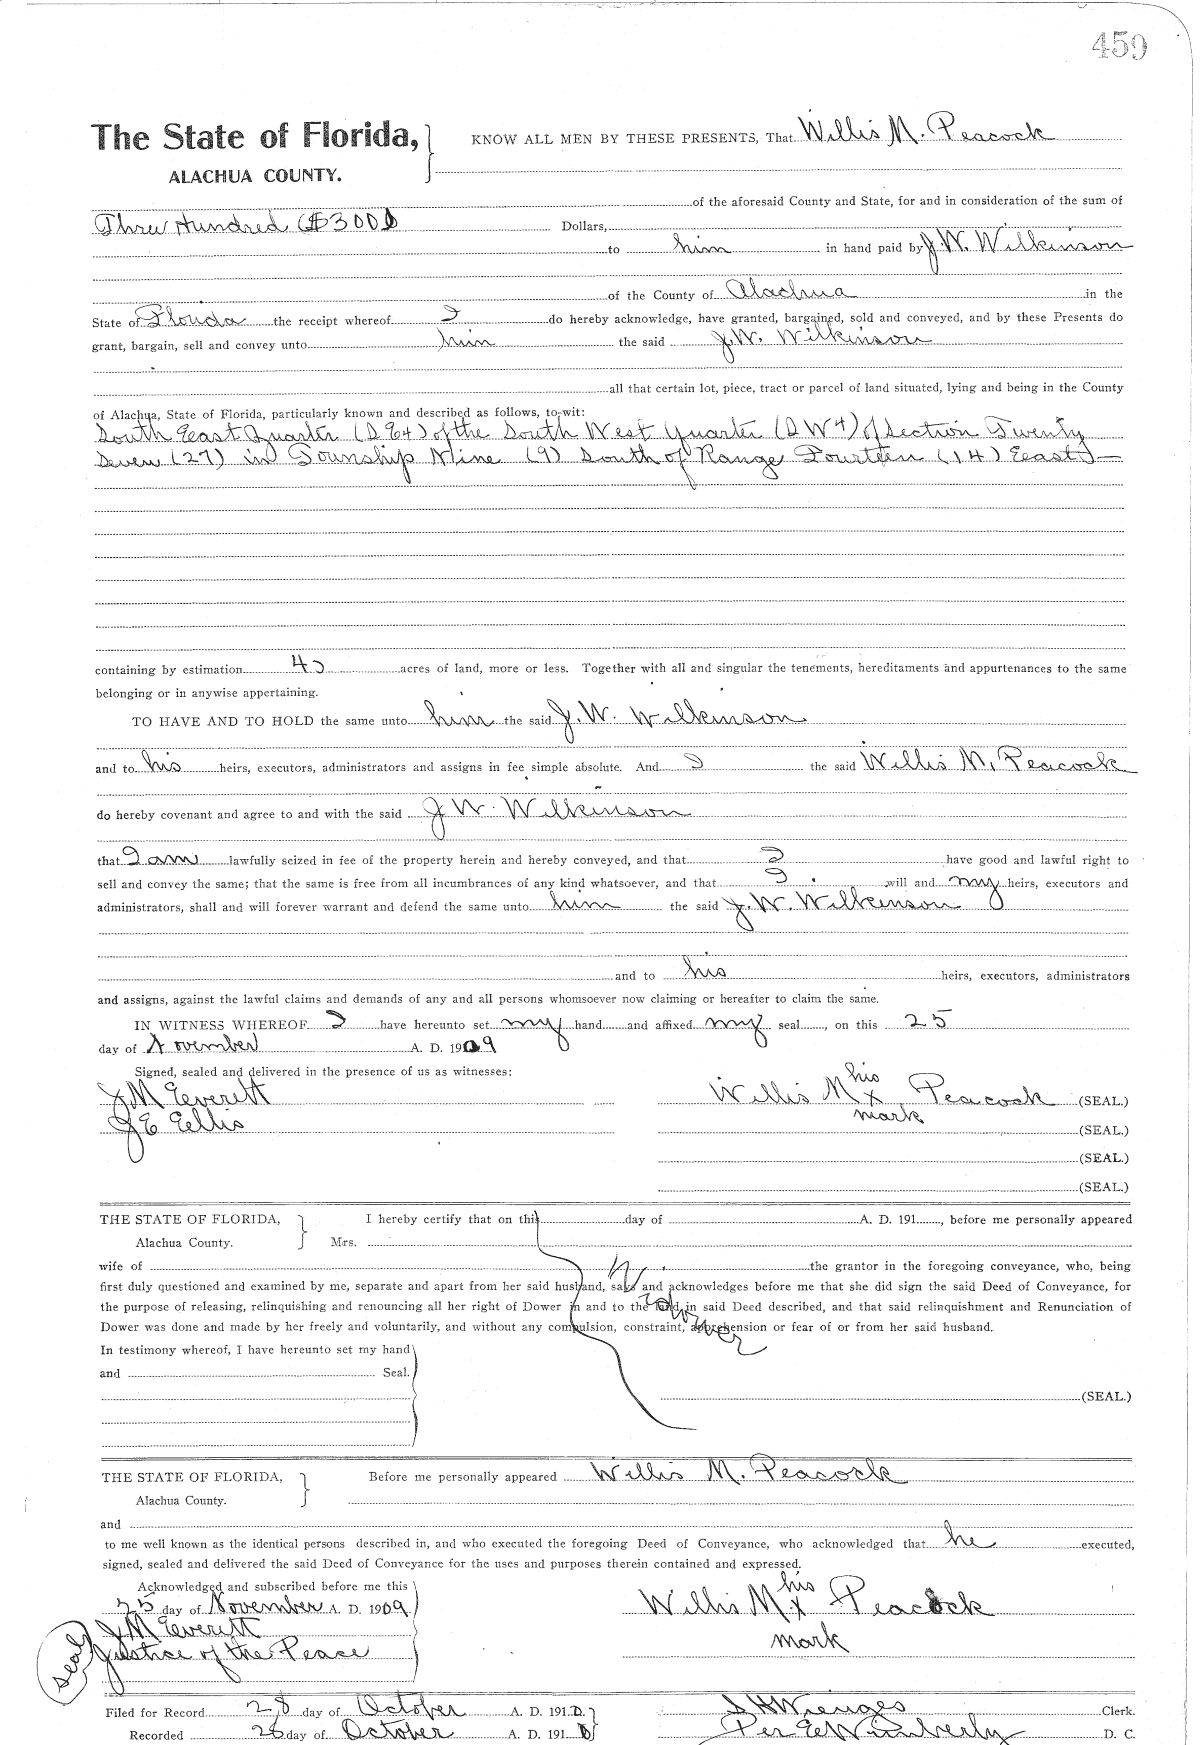 459
The State of Florida,
ALACHUA COUNTY.
KNOW ALL MEN BY THESE PRESENTS, That Willis M. Peacock
of the aforesaid County and State, for and in consideration of the sum of
Three Hundred ($300) Dollars,
to him in hand paid by J. W. Wilkinson
of the County of Alachua in the
State of Florida the receipt whereof I do hereby acknowledge, have granted, bargained, sold and conveyed, and by these Presents do
grant, bargain, sell and convey unto him the said J. W. Wilkinson
all that certain lot, piece, tract or parcel of land situated, lying and being in the County
of Alachua, State of Florida, particularly known and described as follows, to-wit:
South East Quarter (S E 4) of the South West Quarter (S W 4) of Section Twenty
Seven (27) in Township Nine (9) South of Range Fourteen (14) East
containing by estimation 40 acres of land, more or less. Together with all and singular the tenements, hereditaments and appurtenances to the same
belonging or in anywise appertaining.
TO HAVE AND TO HOLD the same unto him the said J. W. Wilkinson
and to his heirs, executors, administrators and assigns in fee simple absolute. And I the said Willis M. Peacock
do hereby covenant and agree to and with the said J W. Wilkinson
that I am lawfully seized in fee of the property herein and hereby conveyed, and that I have good and lawful right to
sell and convey the same; that the same is free from all incumbrances of any kind whatsoever, and that I will and my heirs, executors and
administrators, shall and will forever warrant and defend the same unto him the said J. W. Wilkinson
and to his heirs, executors, administrators
and assigns, against the lawful claims and demands of any and all persons whomsoever now claiming or hereafter to claim the same.
IN WITNESS WHEREOF I have hereunto set my hand and affixed my seal, on this 25
day of November A. D. 1909
Signed, sealed and delivered in the presence of us as witnesses:
J M Everett
J E Ellis
Willis M his x mark Peacock (SEAL.)
(SEAL.)
(SEAL.)
(SEAL.)
THE STATE OF FLORIDA,
Alachua County.
I hereby certify that on this day of A. D. 191, before me personally appeared
Mrs.
wife of the grantor in the foregoing conveyance, who, being
first duly questioned and examined by me, separate and apart from her said husband, says and acknowledges before me that she did sign the said Deed of Conveyance, for
the purpose of releasing, relinquishing and renouncing all her right of Dower in and to the land in said Deed described, and that said relinquishment and Renunciation of
Dower was done and made by her freely and voluntarily, and without any compulsion, constraint, apprehension or fear of or from her said husband.
In testimony whereof, I have hereunto set my hand
and Seal.
(SEAL.)
THE STATE OF FLORIDA,
Alachua County.
Before me personally appeared Willis M. Peacock
and
to me well known as the identical persons described in, and who executed the foregoing Deed of Conveyance, who acknowledged that he executed,
signed, sealed and delivered the said Deed of Conveyance for the uses and purposes therein contained and expressed.
Acknowledged and subscribed before me this
25 day of November A. D. 1909
J M Everett
Justice of the Peace
Seal
Willis M his x mark Peacock
Filed for Record 28 day of October A. D. 191 S H Wienges Clerk.
Recorded 28 day of October A. D. 191 Per E Wimberly D. C.